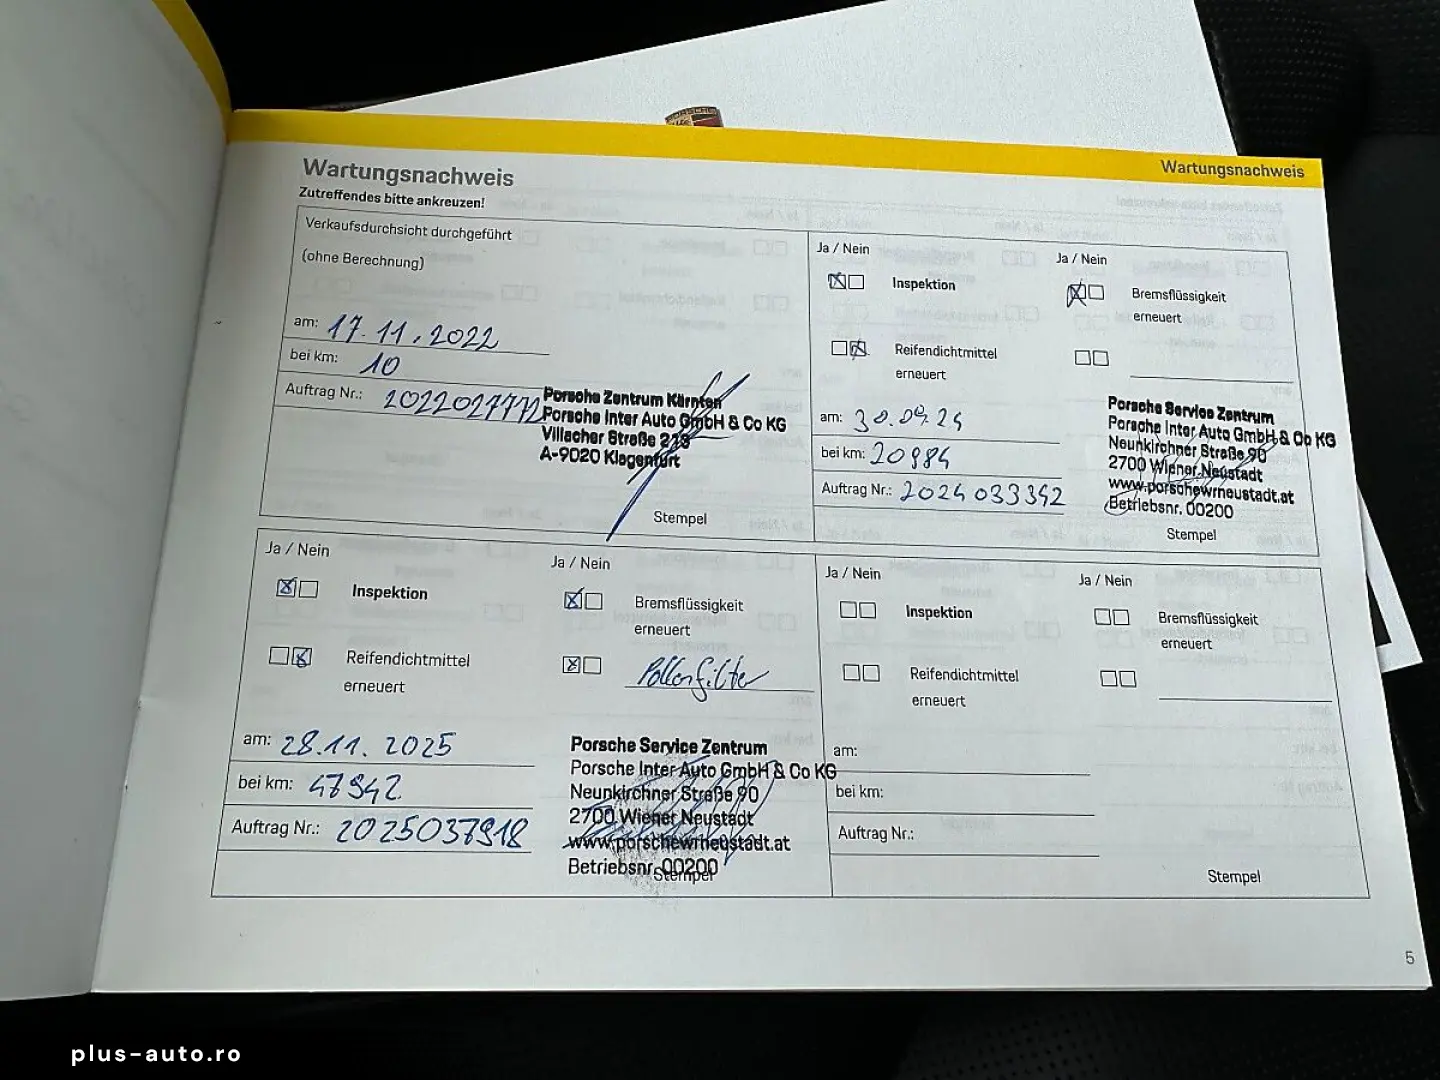 Wartungsnachweis
Wartungsnachweis
Zutreffendes bitte ankreuzen!
Verkaufsdurchsicht durchgeführt
(ohne Berechnung)
am: 17.11.2022
bei km: 10
Auftrag Nr.: 2022027772
Porsche Zentrum Kärnten
Porsche Inter Auto GmbH & Co KG
Villacher Straße 213
A-9020 Klagenfurt
Stempel
Ja / Nein
Inspektion
Reifendichtmittel
erneuert
Ja / Nein
Bremsflüssigkeit
erneuert
am: 30.09.24
bei km: 20984
Auftrag Nr.: 2024033342
Porsche Service Zentrum
Porsche Inter Auto GmbH & Co KG
Neunkirchner Straße 90
2700 Wiener Neustadt
www.porschewrneustadt.at
Betriebsnr. 00200
Stempel
Ja / Nein
Inspektion
Reifendichtmittel
erneuert
Ja / Nein
Bremsflüssigkeit
erneuert
Pollenfilter
am: 28.11.2025
bei km: 47942
Auftrag Nr.: 2025037918
Porsche Service Zentrum
Porsche Inter Auto GmbH & Co KG
Neunkirchner Straße 90
2700 Wiener Neustadt
www.porschewrneustadt.at
Betriebsnr. 00200
Stempel
Ja / Nein
Inspektion
Reifendichtmittel
erneuert
Ja / Nein
Bremsflüssigkeit
erneuert
am:
bei km:
Auftrag Nr.:
Stempel
5
plus-auto.ro